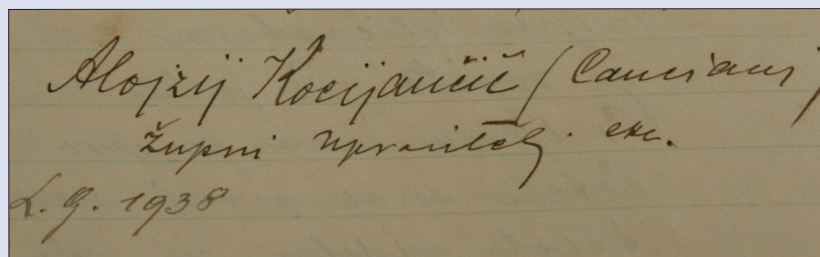 Alojzij Kocijančič (Canciani)
župni upravitelj. exc.
L. G. 1938